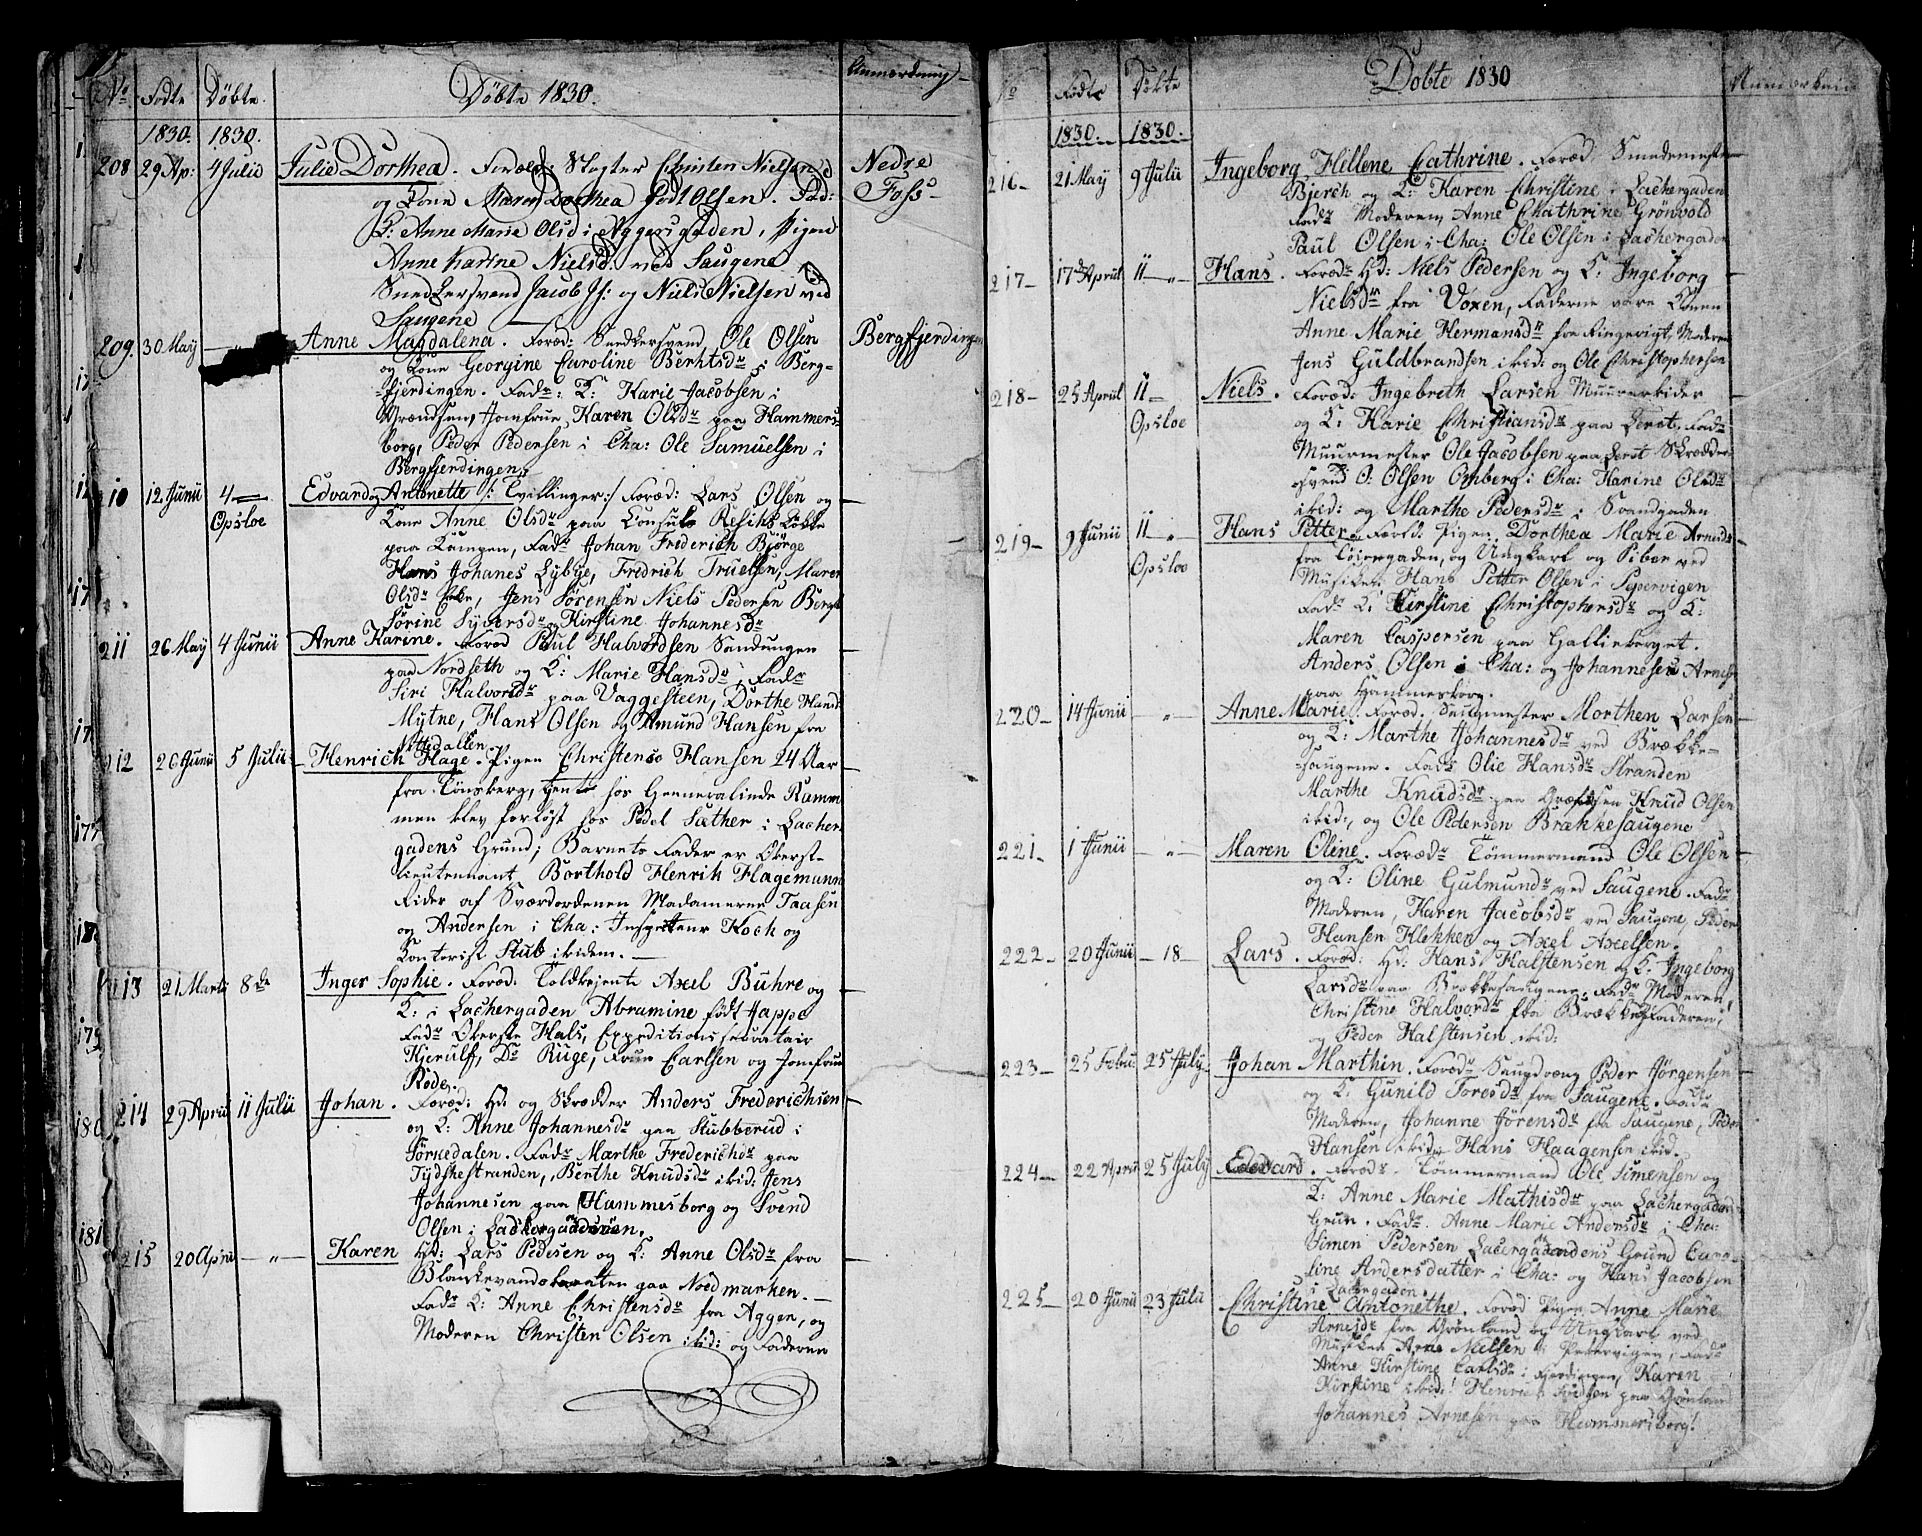 No Fødte Døbte. Døbte 1830. Anmærkning
1830. 1830.
208 29 Ap: 4 Julii Julie Dorthea. Foræld: Slagter Christen Nielsen Nedre
og Kone Maren Dorthea født Olsen. Fad: Foss
K: Anne Marie Olsd i Aggersgaden, Pigen
Anne Karine Nielsd: ved Saugene
Snedkersvend Jacob og Niels Nielsen ved
Saugene
209. 30 May Anne Magdalena. Foræd: Snedkersvend Ole Olsen Bergfjerdingen
og Kone Georgine Caroline Berntsdr i Berg-
fjerdingen. Fadr: K: Karie Jacobsen i
Grændsen, Jomfrue Karen Olsdr paa Hammers-
borg, Peder Pedersen i Cha: Ole Samuelsen i
Bergfjerdingen,
10 12 Junii 4 Edvard og Antonette /: Tvillinger:/ Foræd: Lars Olsen og
Opsloe Kone Anne Olsdr paa Consul Løkke
paa Tangen, Fadr Johan Frederich Bjørge
Hans Johanes Lybye, Fredrich Truelsen, Maren
Olsdr Jens Sørensen Niels Pedersen Bergst
Sørine Syversdr Kirstine Johannesdr
211 26 May 4 Junii Anne Karine. Foræd Paul Halvordsen Sandungen
paa Nordseth og K: Marie Hansdr, Fadr
Siri Halvorsdr paa Vaggesteen, Dorthe Hansd
Mytne, Hans Olsen og Amund Hansen, fra
Nittedallen
212 26 Junii 5 Julii Henrich Hage. Pigen Christense Hansen 24 Aar
fra Tønsberg, tjente hos Generalinde Ramm
men blev forløst hos Pedel Sæther i Lacker
gadens Grund; Barnets Fader er Oberst-
lieutennant Borthold Henrik Hagemann
Rider af Sværdordenen Madamerne Taasen
og Andersen i Cha: Inspecteur Koch og
Contorist Stub ibidem.
13 21 Marts 8de Inger Sophie. Foræd: Toldbetjente Axel Buhre og
K: i Lackergaden Abramine født Jappe
Fadr Oberste Hals, Expeditionssecretair
Kjerulf, Do Ruge, Frue Carlsen og Jomfrue
Røde.
214 29 April 11 Julii Johan. Foræd: Hd: og Skrædder Anders Frederichsen
og K: Anne Johannesdr paa Stubberud i
Sørkedalen. Fadr Marthe Frederichsdr paa
Tydskestranden, Benthe Knudsdr ibid: Jens
Johannesen paa Hammersborg og Svend
Olsen i Lackergaden.
215 20 April Karen Hd: Lars Pedesen og K: Anne Olsdr fra
Blankevandsbraaten paa Nordmarken.
Fadr K: Anne Christensdr fra Aggen, og
Moderen Christen Olsen ibid: og Faderen
No Fødte Døbte Døbte 1830 Anmærkning
1830. 1830.
216 21 May 9 Julii Ingeborg Hellene Cathrine. Foræd Smedemester
Bjerch og K: Karen Christine i Lackergaden
Fadr Moderen, Anne Chathrine Grönvold
Paul Olsen i Cha: Ole Olsen i Lackergaden
217 17de April 11 Hans. Forædr Hd: Niels Pedersen og K: Ingeborg
Nielsdr fra Voxen, Faderne være Konen
Anne Marie Hermansdr fra Ringerigt, Moderen
Jens Guldbrandsen ibid: og Ole Christophersen
218 25 April 11 Niels. Foræd: Ingebreth Larsen Muurarbeider
Opsloe og K: Karie Christiansdr paa Leret, Fadr
Muurmester Ole Jacobsen paa Leret Skrædder
svend O: Olsen Omberg i Cha: Karine Olsdr
ibid: og Marthe Pedersdr i Vandgaden
219 9 Junii 11 Hans Petter. Forld: Pigen Dorthea Marie Arnesd
Opsloe fra Tøiengaden, og Ungkarl og Piber ved
Musiken Hans Petter Olsen i Pipervigen
Fadr K: Kirstine Christophersdr og K:
Maren Caspersen paa Galleberget.
Anders Olsen i Cha: og Johannesen Arnesen
paa Hammersborg.
220 14 Junii Anne Marie. Foræd. Saugmester Morthen Larsen
og K: Marthe Johannesdr ved Brække-
saugene. Fadr Olie Hansdr Stranden
Marthe Knudsdr paa Grændsen Knud Olsen
ibid:, og Ole Pedersen Brækkesaugene
221 1 Junii Maren Oline. Forædr Tømmermand Ole Olsen
og K: Oline Gulmundr ved Saugene. Fadr
Moderen, Karen Jacobsdr ved Saugene, Peder
Hansen Klekken og Axel Axelsen.
222 20 Junii 18 Lars. Foræd: Hd: Hans Halstensen og K. Ingeborg
Larsdr paa Brækkesaugene, Fadr Moderen,
Christine Halvordr fra Brække, Faderen,
og Peder Halstensen ibid:
223 25 Febru 25 July Johan Marthin. Forædr Saugdreng Peder Jørgensen
og K: Gunild Toresdr fra Saugene. Fadr
Moderen, Johanne Jørensdr fra Saugene, Peder
Hansen ibid: Hans Haagensen ibid.
224 22 April 25 July Edevard. Forædr. Tømmermand Ole Simensen og
K: Anne Marie Mathisdr paa Lackergadens
Grun. Fadr. Anne Marie Andersdr i Cha:
Simen Pedersen Lackergadens Grund Caro-
line Andersdatter i Cha: og Hans Jacobsen
i Lackergaden.
225 20 Junii 23 Julii Christine Antonethe. Foræd Pigen Anne Marie
Arnesdr fra Grønland og Ungkarl ved
Musiken Arne Nielsen i Pipervigen, Fadr
Anne Kirstine Carlsdr i Fjerdingen, Karen
Kirstine ibid! Henrich paa Grønland
Johannes Arnesen paa Hammersborg!